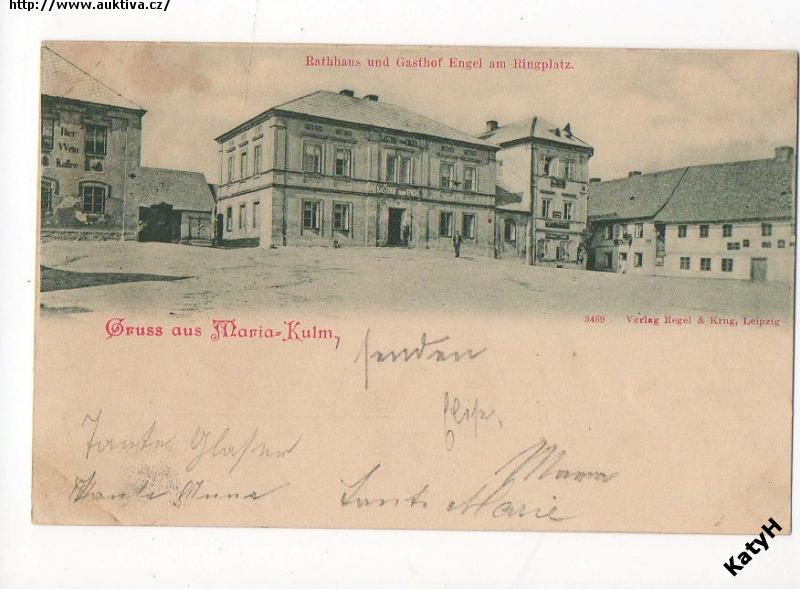 http://www.auktiva.cz/
Rathhaus und Gasthof Engel am Ringplatz.
Hier
Wein
Kaffee
GASTHOF ZUM ENGEL
Gruss aus Maria-Kulm,
3469 Verlag Regel & Krug, Leipzig
senden
Elise,
Tante Glaser
Mama
Tante Anna
Tante Marie
KatyH